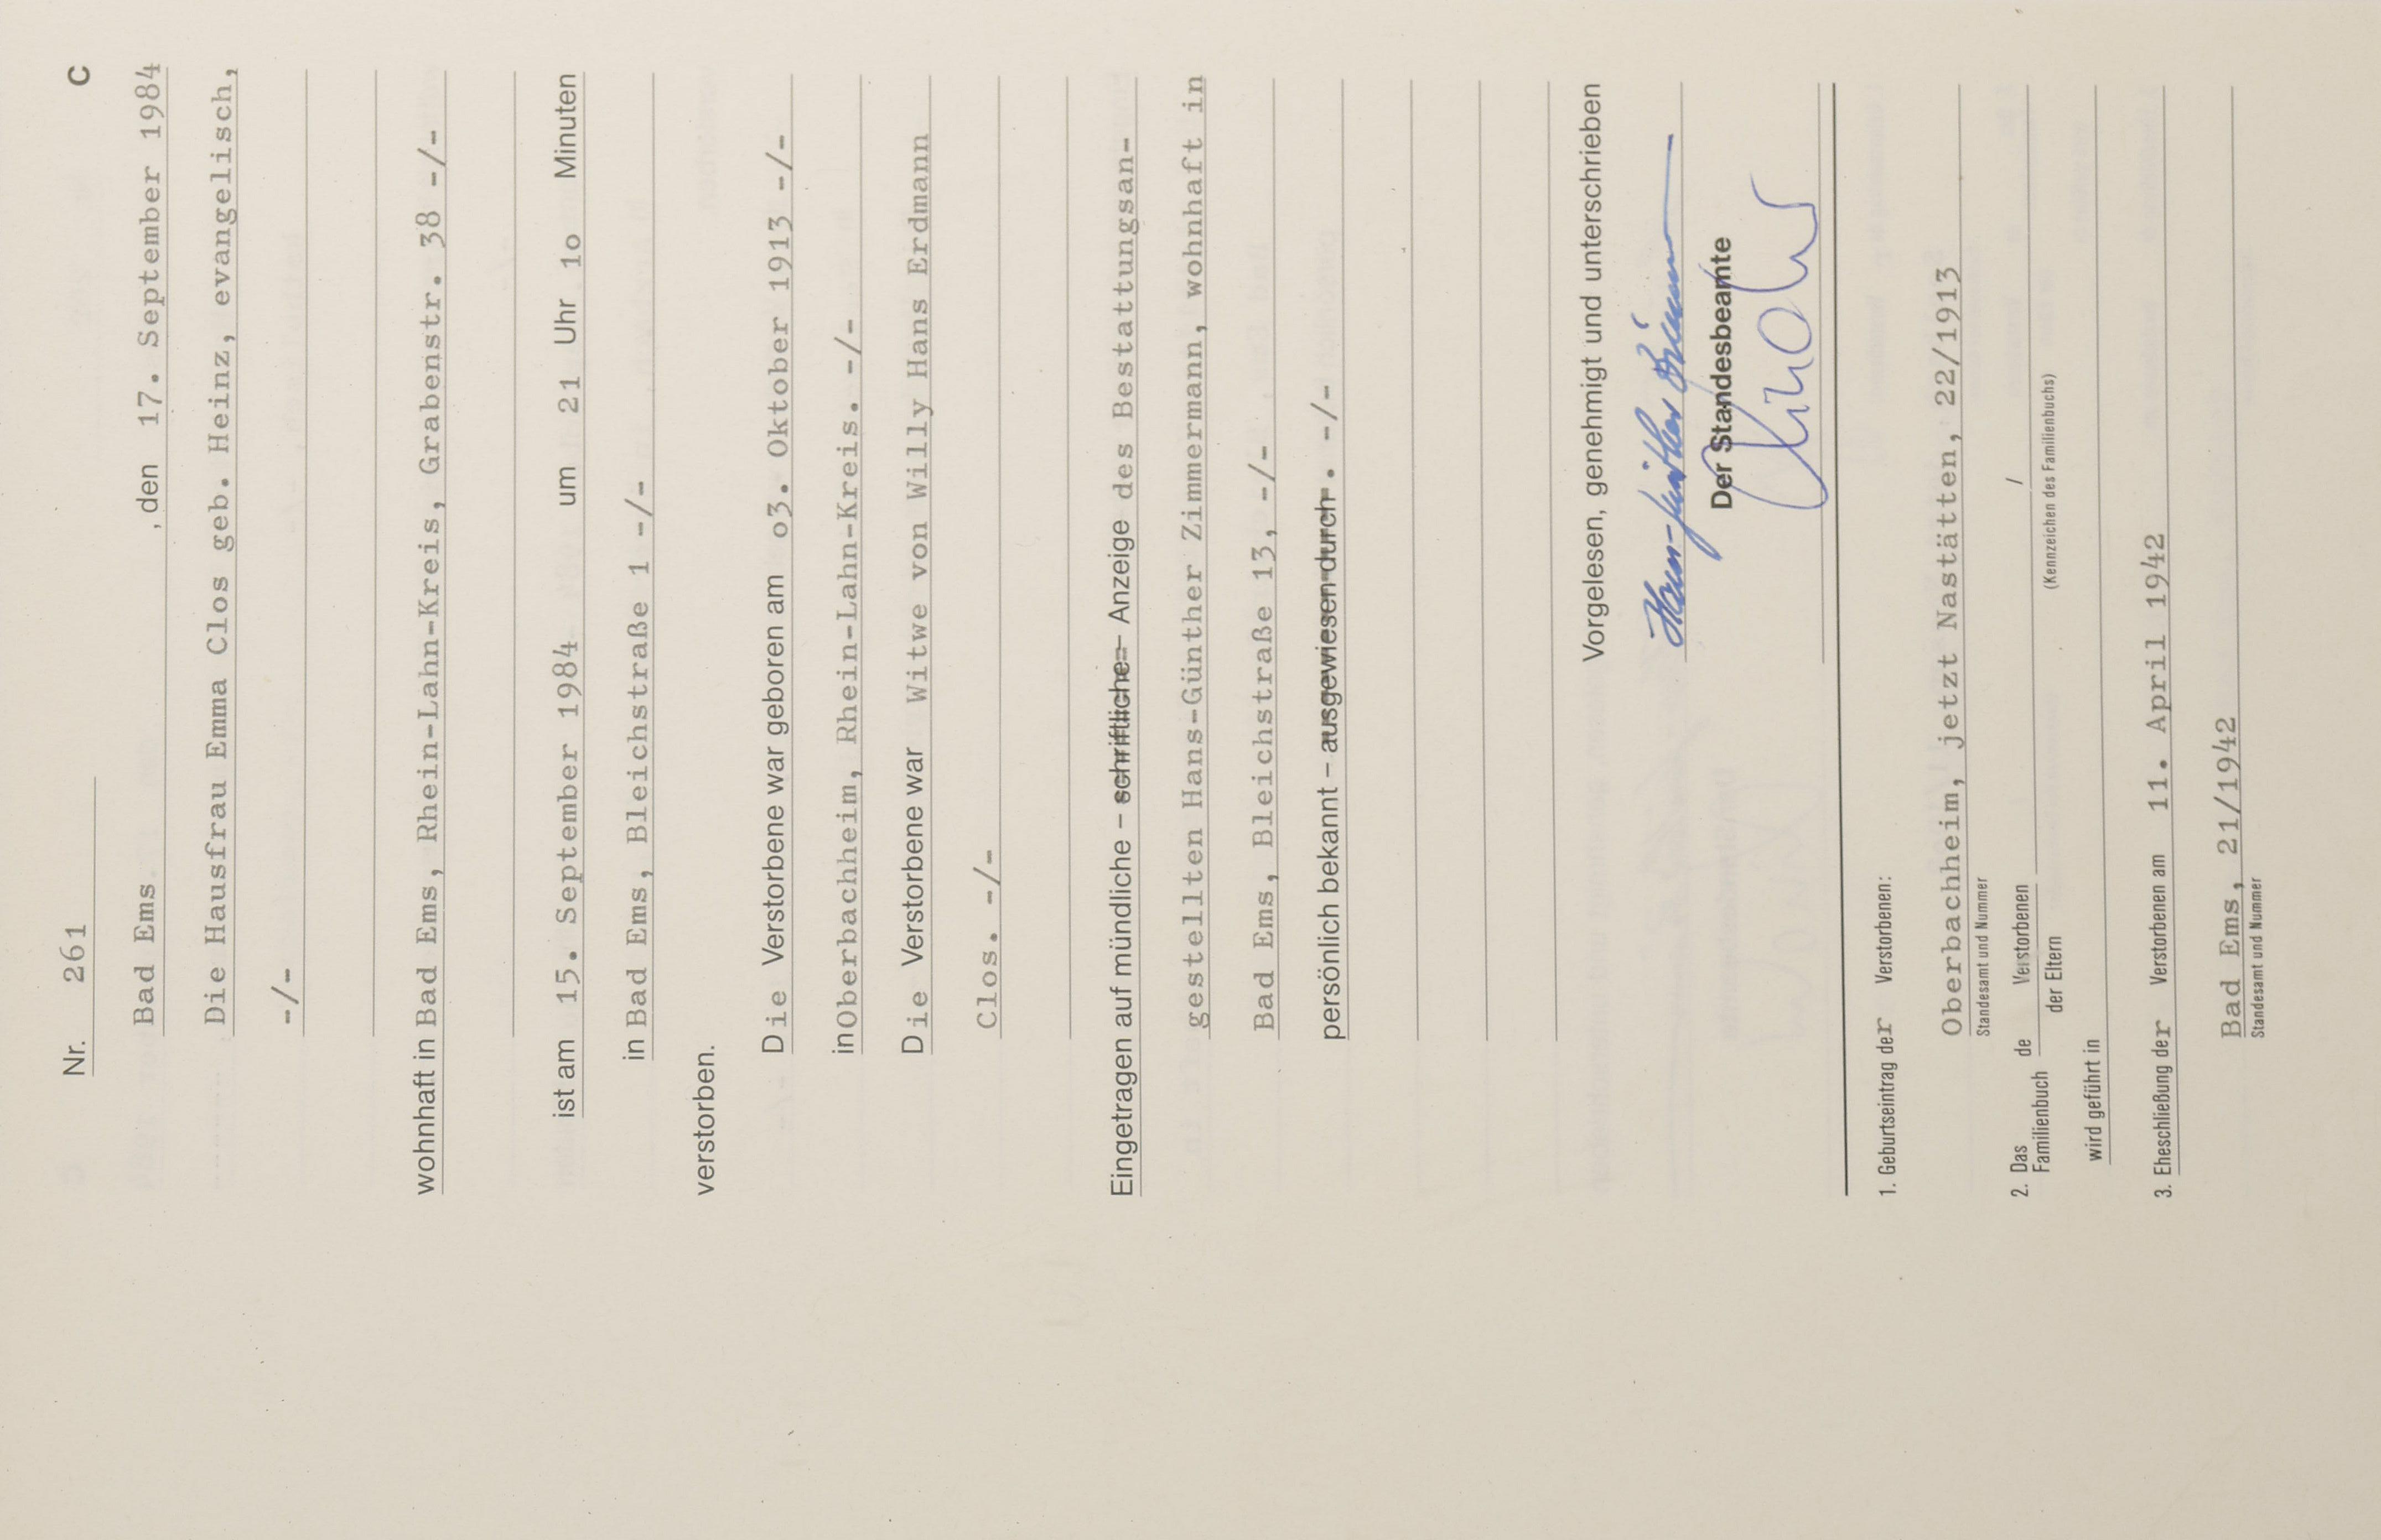 Nr. 261 C
Bad Ems , den 17. September 1984
Die Hausfrau Emma Clos geb. Heinz, evangelisch,
-/-
wohnhaft in Bad Ems, Rhein-Lahn-Kreis, Grabenstr. 38 -/-
ist am 15. September 1984 um 21 Uhr 1o Minuten
in Bad Ems, Bleichstraße 1 -/-
verstorben.
Die Verstorbene war geboren am o3. Oktober 1913 -/-
in Oberbachheim, Rhein-Lahn-Kreis. -/-
Die Verstorbene war Witwe von Willy Hans Erdmann
Clos. -/-
Eingetragen auf mündliche – schriftliche – Anzeige des Bestattungsan-
gestellten Hans-Günther Zimmermann, wohnhaft in
Bad Ems, Bleichstraße 13, -/-
persönlich bekannt – ausgewiesen durch . -/-
Vorgelesen, genehmigt und unterschrieben
Der Standesbeamte
1. Geburtseintrag der Verstorbenen:
Oberbachheim, jetzt Nastätten, 22/1913
Standesamt und Nummer
2. Das Familienbuch de Verstorbenen /
der Eltern (Kennzeichen des Familienbuchs)
wird geführt in
3. Eheschließung der Verstorbenen am 11. April 1942
Bad Ems, 21/1942
Standesamt und Nummer